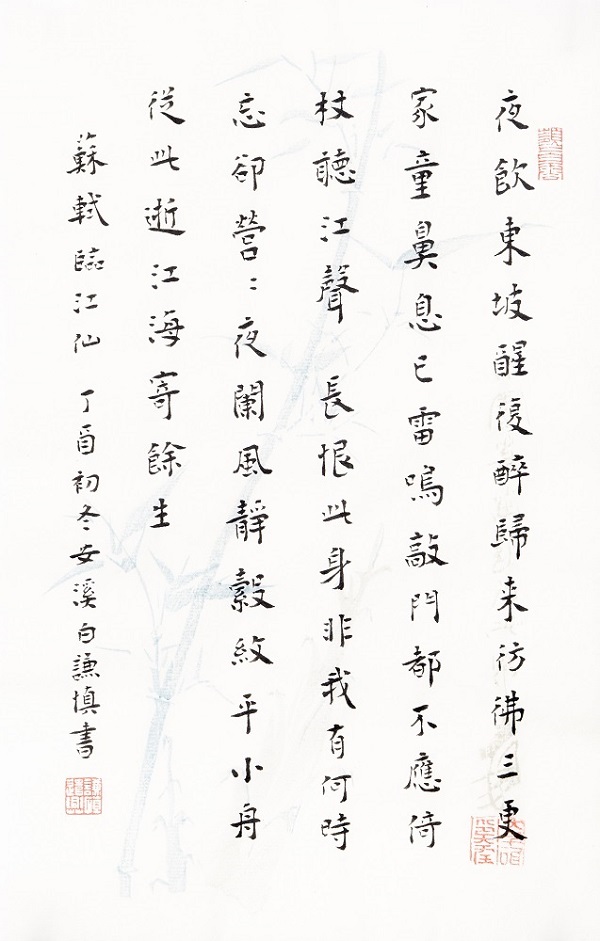 夜飲東坡醒復醉歸来彷彿三更
家童鼻息已雷鳴敲門都不應倚
杖聽江聲 長恨此身非我有何時
忘卻營〻夜闌風靜縠紋平小舟
從此逝江海寄餘生
蘇軾臨江仙 丁酉初冬安溪白謙慎書